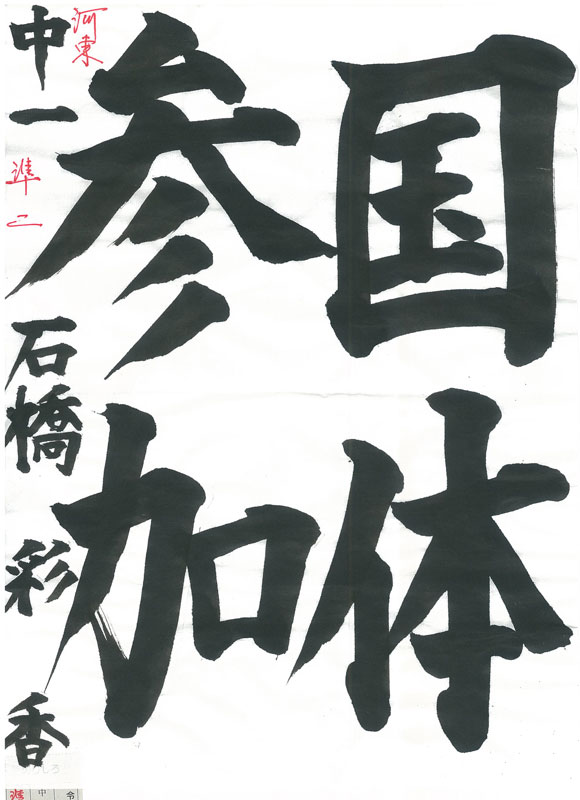 国体
参加
河東
中一 準二
石橋彩香